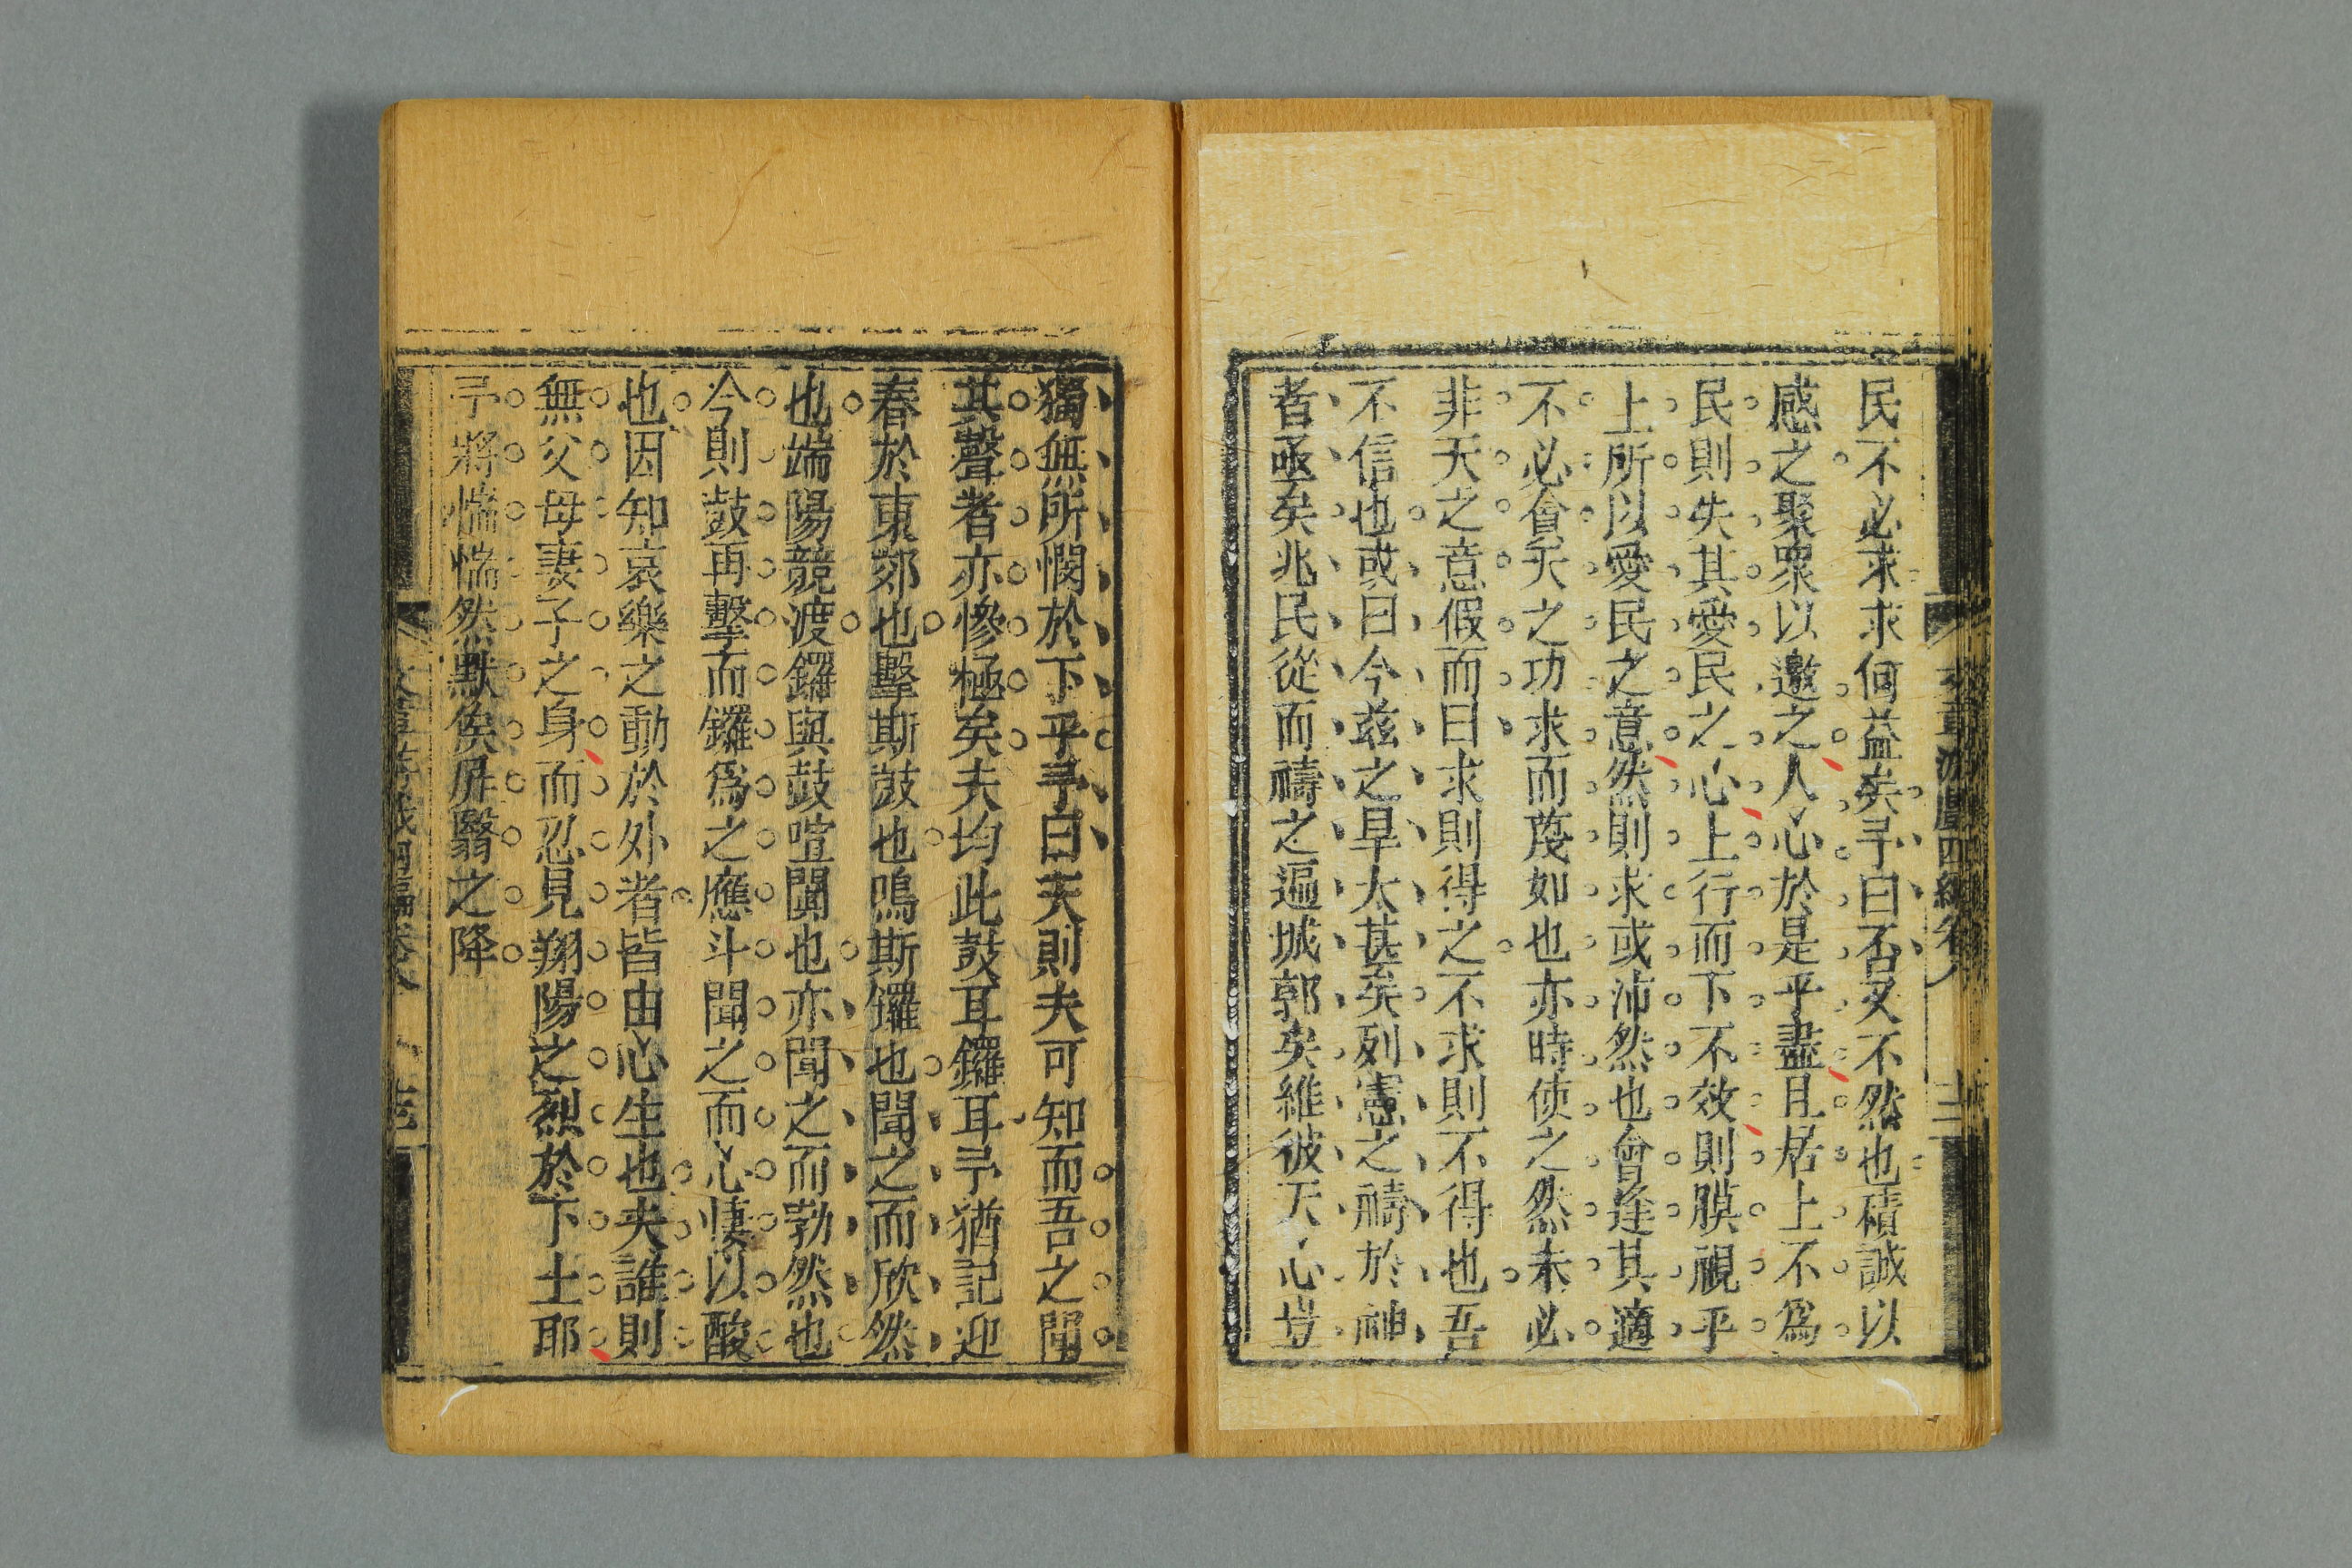 民不必求求何益矣予曰否又不然也積誠以
感之聚眾以邀之人心於是乎盡且居上不為
民則失其愛民之心上行而下不效則膜視乎
上所以愛民之意然則求或沛然也會逢其適
不必會天之功求而蔑如也亦時使之然未必
非天之意假而曰求則得之不求則不得也吾
不信也或曰今茲之旱太甚矣列憲之禱於神
者亟矣兆民從而禱之遍城郭矣維彼天心豈
獨無所憫於下乎予曰天則夫可知而吾之聞
其聲者亦慘極矣夫均此鼓耳鑼耳予猶記迎
春於東郊也擊斯鼓也鳴斯鑼也聞之而欣然
也端陽競渡鑼與鼓喧闐也亦聞之而勃然也
今則鼓再擊而鑼為之應斗聞之而心悽以酸
也因知哀樂之動於外者皆由心生也夫誰則
無父母妻子之身而忍見翔陽之烈於下土耶
予將惴惴然默俟屏翳之降